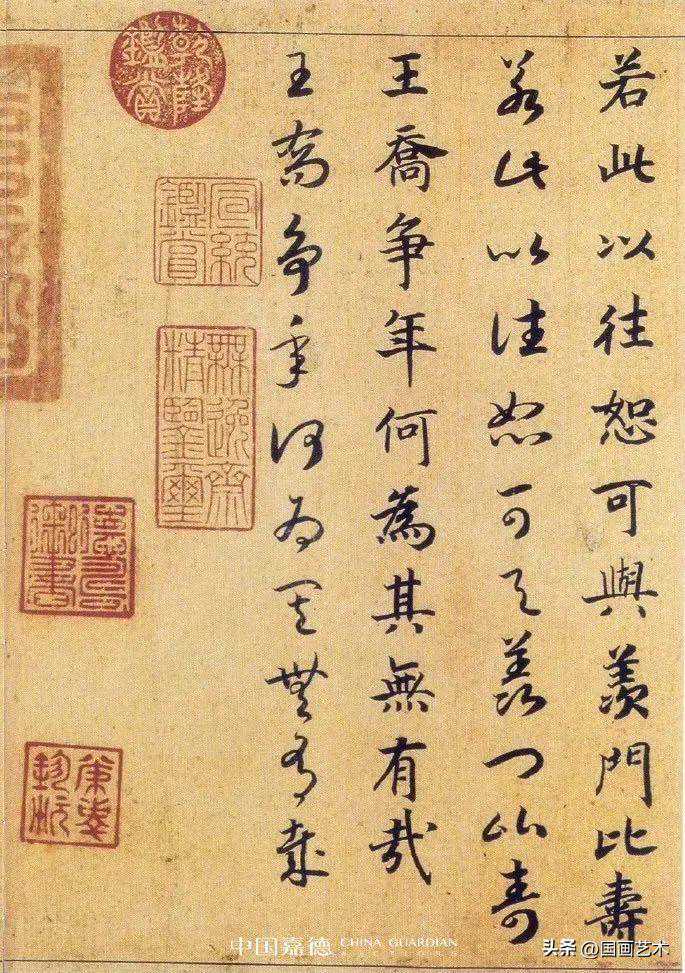 若此以往恕可與羨門比壽
若此以往恕可與羨門比壽
王喬争年何為其無有哉
王喬争年何為其無有哉
乾隆鑑賞
宣統鑑賞
無逸齋精鑒璽
中国嘉德 CHINA GUARDIAN
头条 @国画艺术